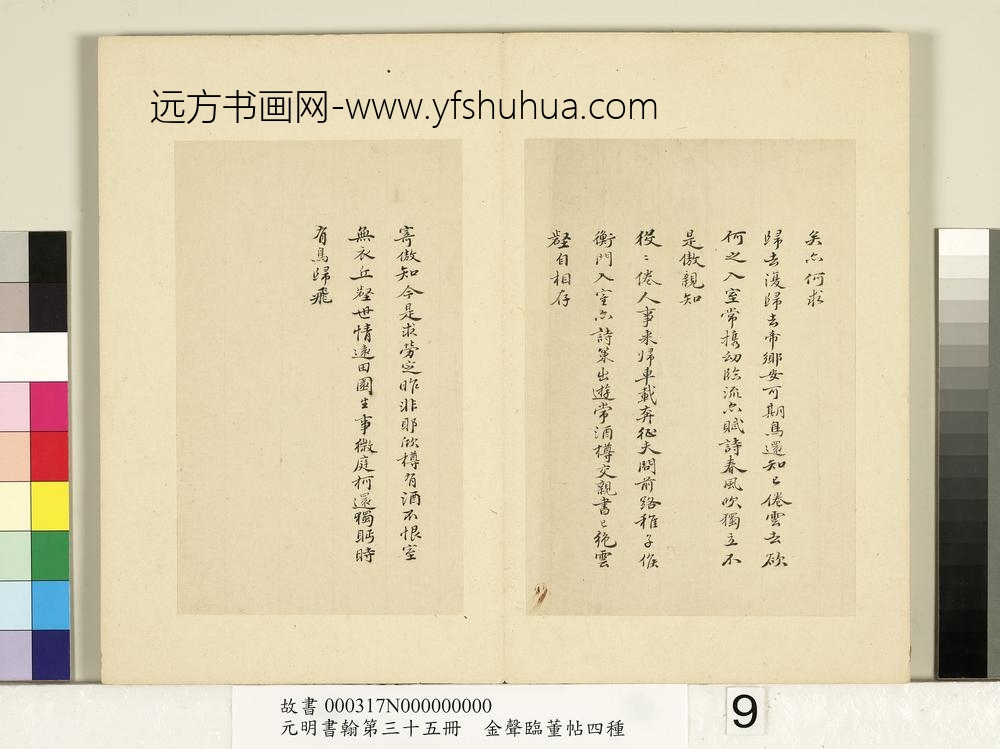 远方书画网-www.yfshuhua.com
矣亦何求
歸去復歸去帝鄉安可期鳥還知已倦雲出欲
何之入室常携幼臨流亦賦詩春風吹獨立不
是傲親知
役〻倦人事來歸車載奔征夫問前路稚子候
衡門入室亦詩策出遊常酒樽交親書已絕雲
壑自相存
寄傲知今是求勞定昨非聊欣樽有酒不恨室
無衣丘壑世情遠田園生事微庭柯還獨眄時
有鳥歸飛
故書 000317N000000000
元明書翰第三十五冊 金聲臨董帖四種
9